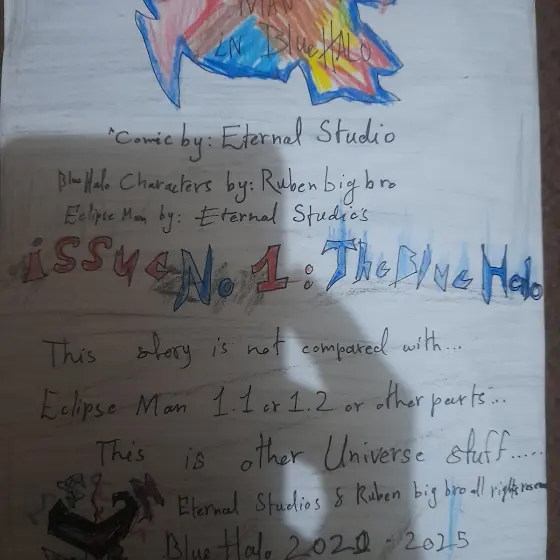 MAN
iN Blue HALO
"Comic by: Eternal Studio
Blue Halo Characters by: Ruben big bro
Eclipse Man by: Eternal Studio's
issue No. 1: The Blue Halo
This story is not compared with...
Eclipse Man 1.1 or 1.2 or other parts...
This is other Universe stuff.....
Eternal Studios & Ruben big bro all rights
Blue Halo 2021 - 2025